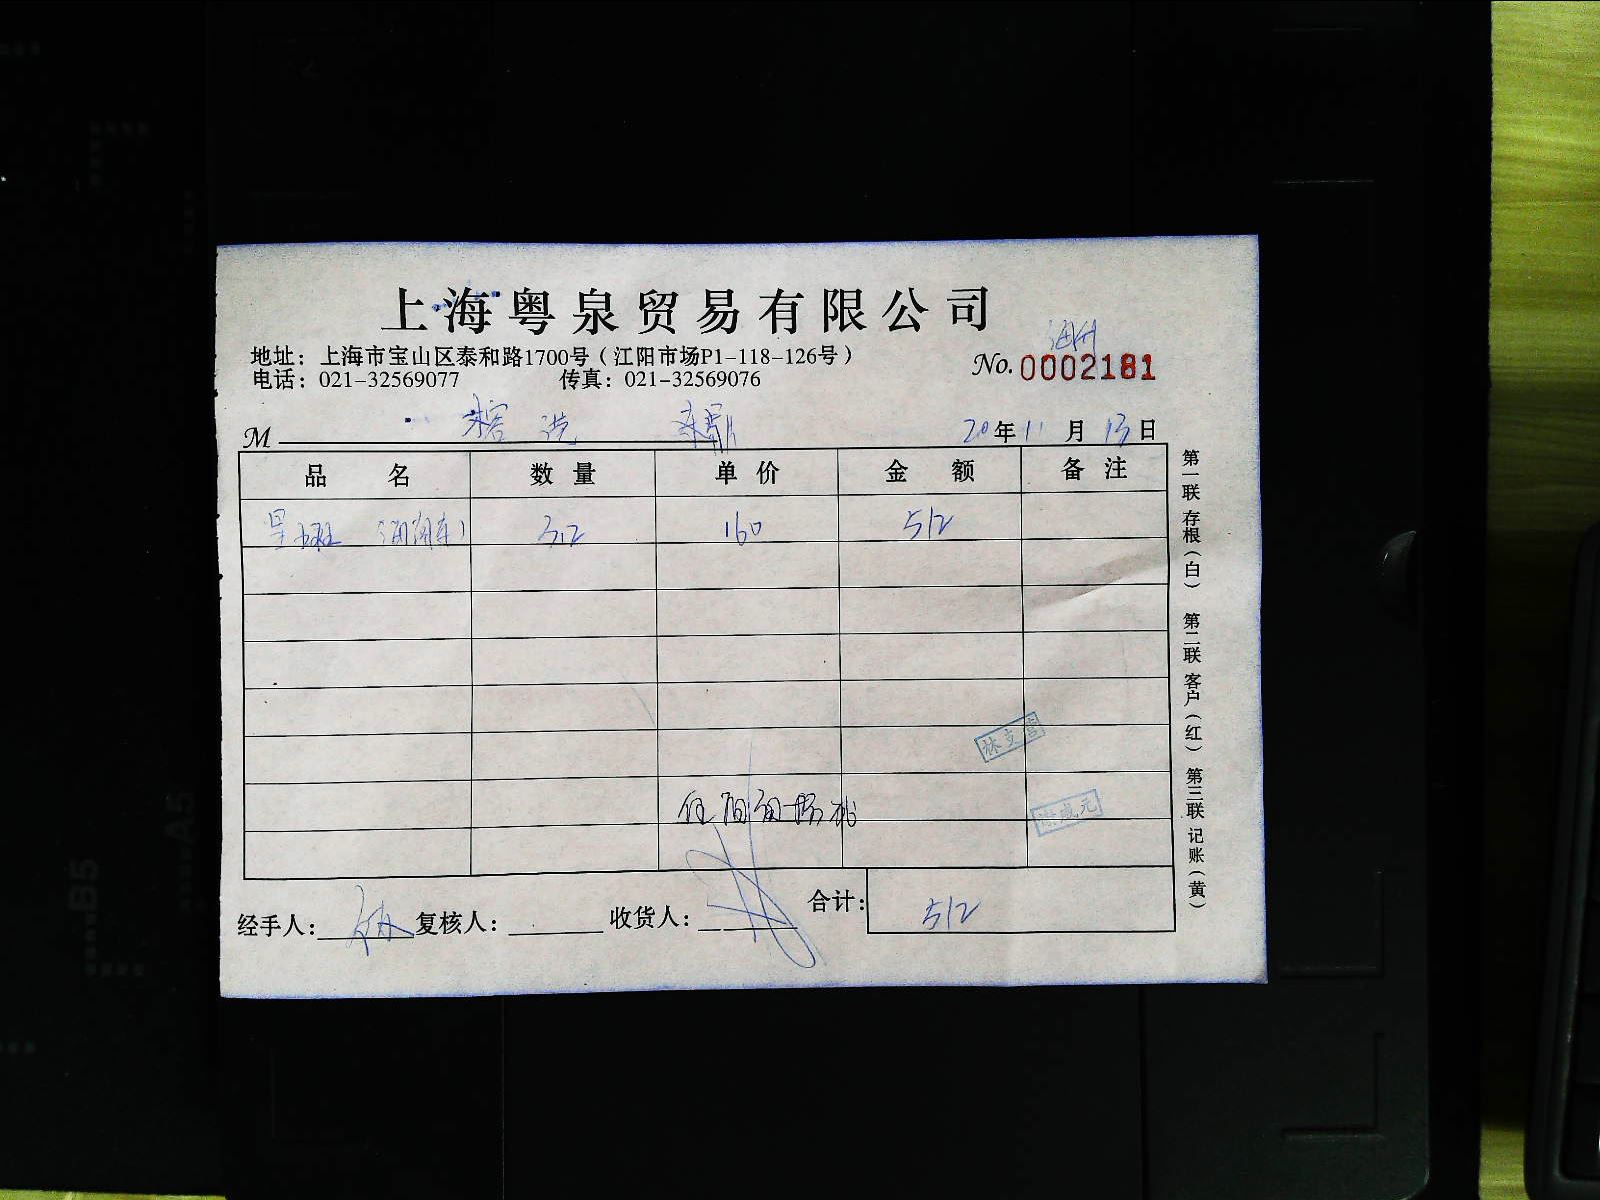 上海粤泉贸易有限公司
地址：上海市宝山区泰和路1700号（江阳市场P1-118-126号）
No. 0002181
电话：021-32569077 传真：021-32569076
M
20年11月13日
品名 数量 单价 金额 备注
星斑 3.2 160 512
第一联 存根（白） 第二联 客户（红） 第三联 记账（黄）
经手人： 复核人： 收货人： 合计： 512
B5
A5